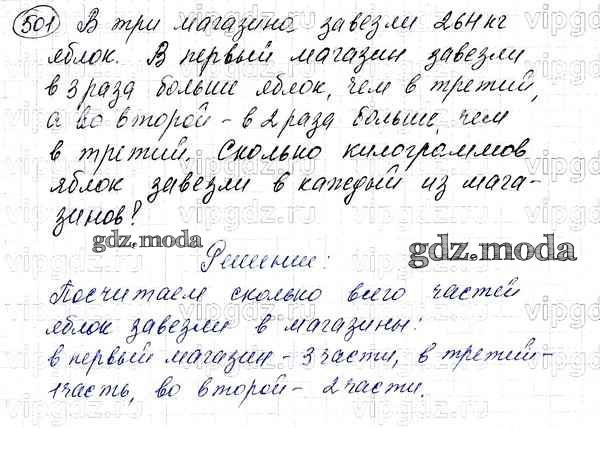 501 В три магазина завезли 264 кг
яблок. В первый магазин завезли
в 3 раза больше яблок, чем в третий,
а во второй - в 2 раза больше, чем
в третий. Сколько килограммов
яблок завезли в каждый из мага-
зинов?
gdz.moda
gdz.moda
Решение:
Посчитаем сколько всего частей
яблок завезли в магазины:
в первый магазин - 3 части, в третий -
1 часть, во второй - 2 части.